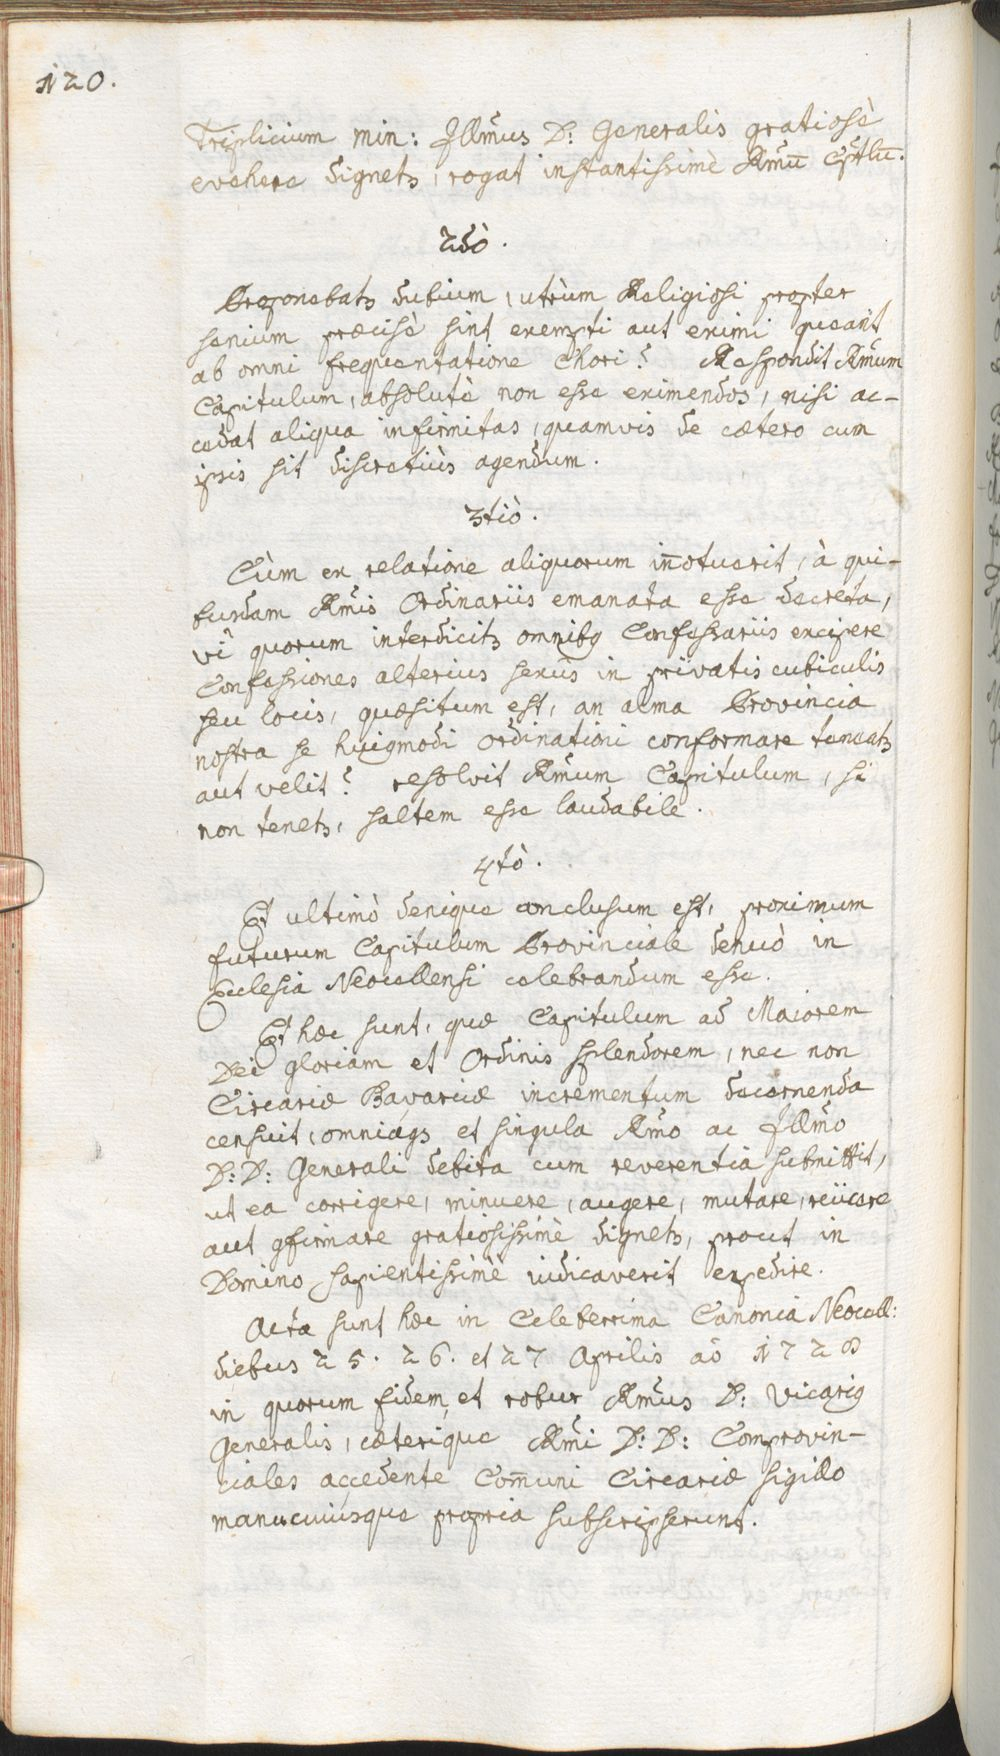 120.
Triplicium min: Illm̃us D: Generalis gratiosè
evehere dignetꝫ, rogat instantissimè Rm̃ū Cptlū.
2dò.
Proponebatꝫ dubium, utrùm Religiosi propter
senium præcisè sint exempti aut eximi queant
ab omni frequentatione Chori? Respondit Rm̃um
Capitulum, absolutè non esse eximendos, nisi ac-
cedat aliqua infirmitas, quamvis de cætero cum
ipsis sit discretiùs agendum.
3tiò.
Cùm ex relatione aliquorum iñotuerit, à qui-
busdam Rm̃is Ordinariis emanata esse decreta,
vî quorum interdicitꝫ omnibꝯ Confessariis excipere
Confessiones alterius sexûs in privatis cubiculis
seu locis, quæsitum est, an alma Provincia
nostra se huiꝯmodi ordinationi conformare teneatꝫ
aut velit? resolvit Rm̃um Capitulum, si
non tenetꝫ, saltem esse laudabile.
4tò.
Et ultimò denique conclusum est, proximum
futurum Capitulum Provinciale denuò in
Ecclesia Neocellensi celebrandum esse.
Et hæc sunt, quæ Capitulum ad Maiorem
Dei gloriam et Ordinis splendorem, nec non
Circariæ Bavaricæ incrementum decernenda
censuit, omniaqꝫ et singula Rm̃o ac Illm̃o
D: D: Generali debita cum reverentia submittit,
ut ea corrigere, minuere, augere, mutare, reiicere
aut ꝯfirmare gratiosissimè dignetꝫ, prout in
Domino sapientissimè iudicaverit expedire.
Acta sunt hæc in Celeberrima Canonia Neocell:
diebus 25. 26. et 27 Aprilis aõ 1728
in quorum fidem et robur Rm̃us D: Vicariꝯ
Generalis, cæterique Rm̃i D: D: Comprovin-
ciales accedente Com̃uni Circariæ sigillo
manu cuiusque propria subscripserunt.